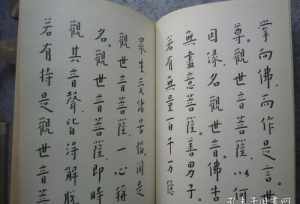 掌向佛而作是言世
尊觀世音菩薩以何
因緣名觀世音佛告
無盡意菩薩善男子
若有無量百千万億
眾生受諸苦惱聞是
觀世音菩薩一心稱
名觀世音菩薩即時
觀其音聲皆得解脫
若有持是觀世音菩